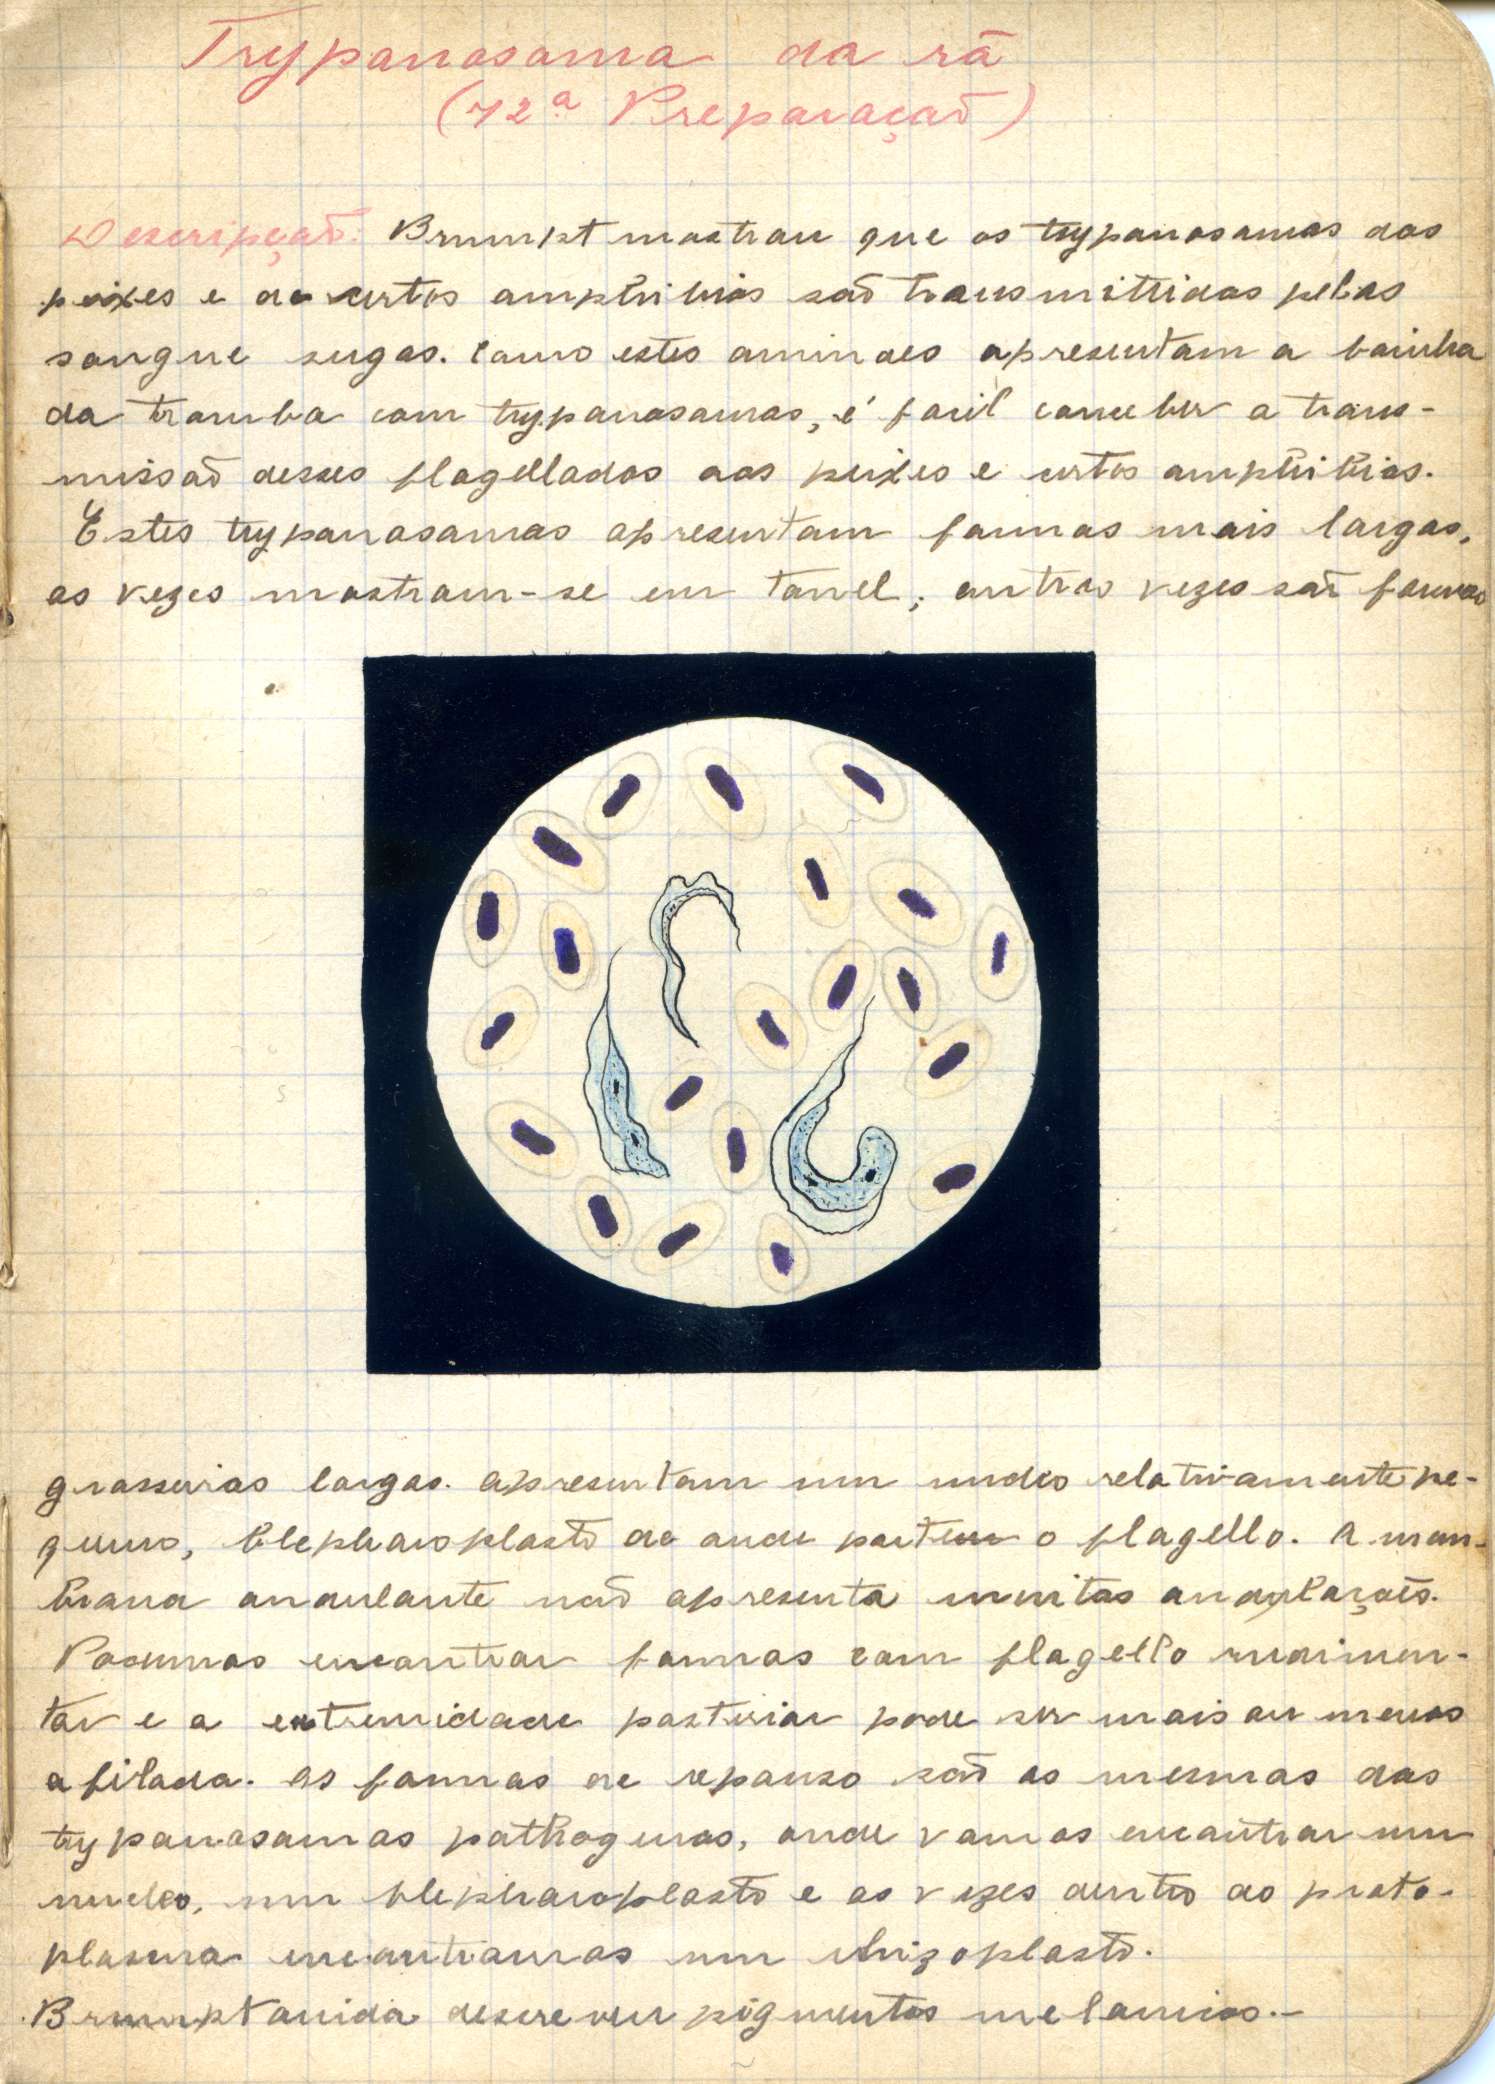 Trypanosoma da rã
(12ª Preparação)
Descripção: Brumpt mostrou que os trypanosomas dos
peixes e de certos amphibios são transmittidos pelas
sangue sugas. Como estes animaes apresentam a bainha
da tromba com trypanosomas, é facil conceber a trans-
missão desses flagellados aos peixes e certos amphibios.
Estes trypanosomas apresentam formas mais largas,
as vezes mostram-se em tonel; outras vezes são formas
grosseiras largas. Apresentam um nucleo relativamente pe-
queno, blepharoplasto de onde partem o flagello. A mem-
brana ondulante não apresenta muitas ondulações.
Podemos encontrar formas com flagello rudimen-
tar e a extremidade posterior pode ser mais ou menos
afilada. As formas de repouso são as mesmas dos
trypanosomas pathogenos, onde vamos encontrar um
nucleo, um blepharoplasto e as vezes dentro do proto-
plasma encontramos um rhizoplasto.
Brumpt ainda descreveu pigmentos melanicos.-